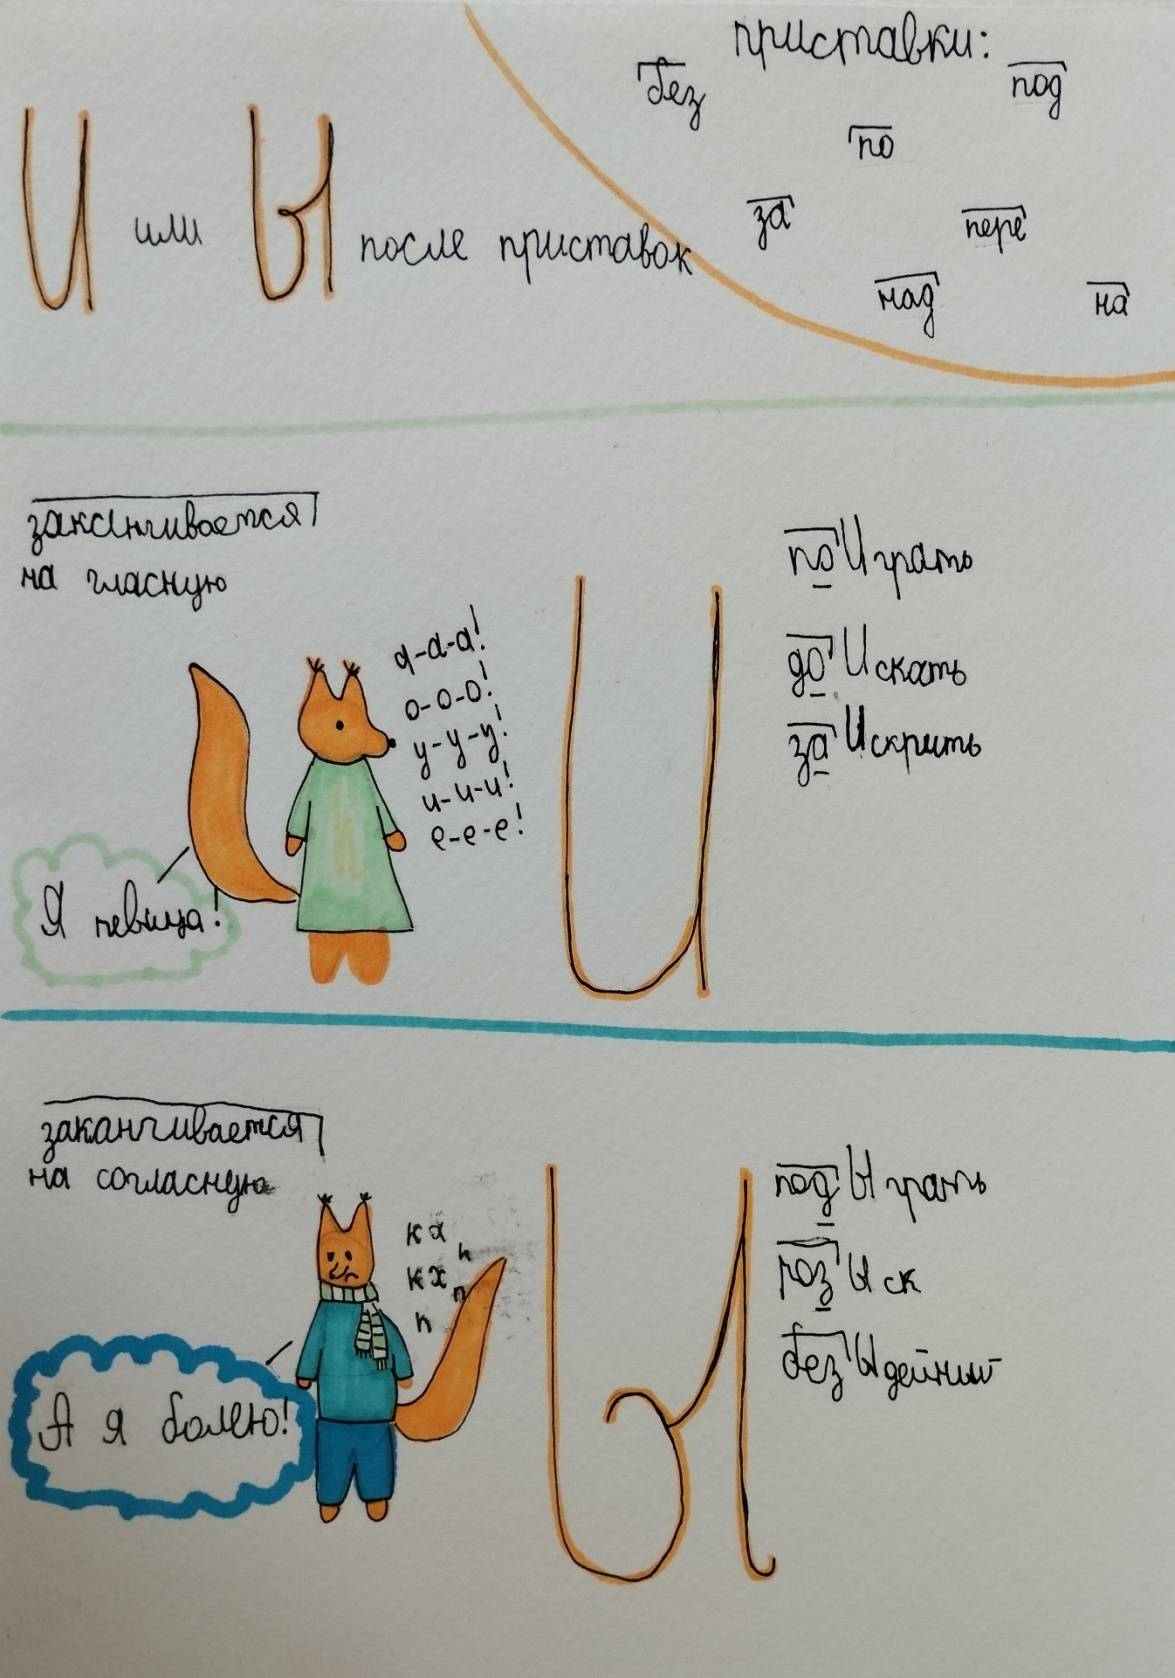 И или Ы после приставок
приставки:
без
под
по
за
пере
над
на
заканчивается
на гласную
а-а-а!
о-о-о!
у-у-у!
и-и-и!
е-е-е!
Я певица!
И
поИграть
доИскать
заИскрить
заканчивается
на согласную
к х
к х п
п
А я болею!
Ы
подЫграть
розЫск
безЫдейный